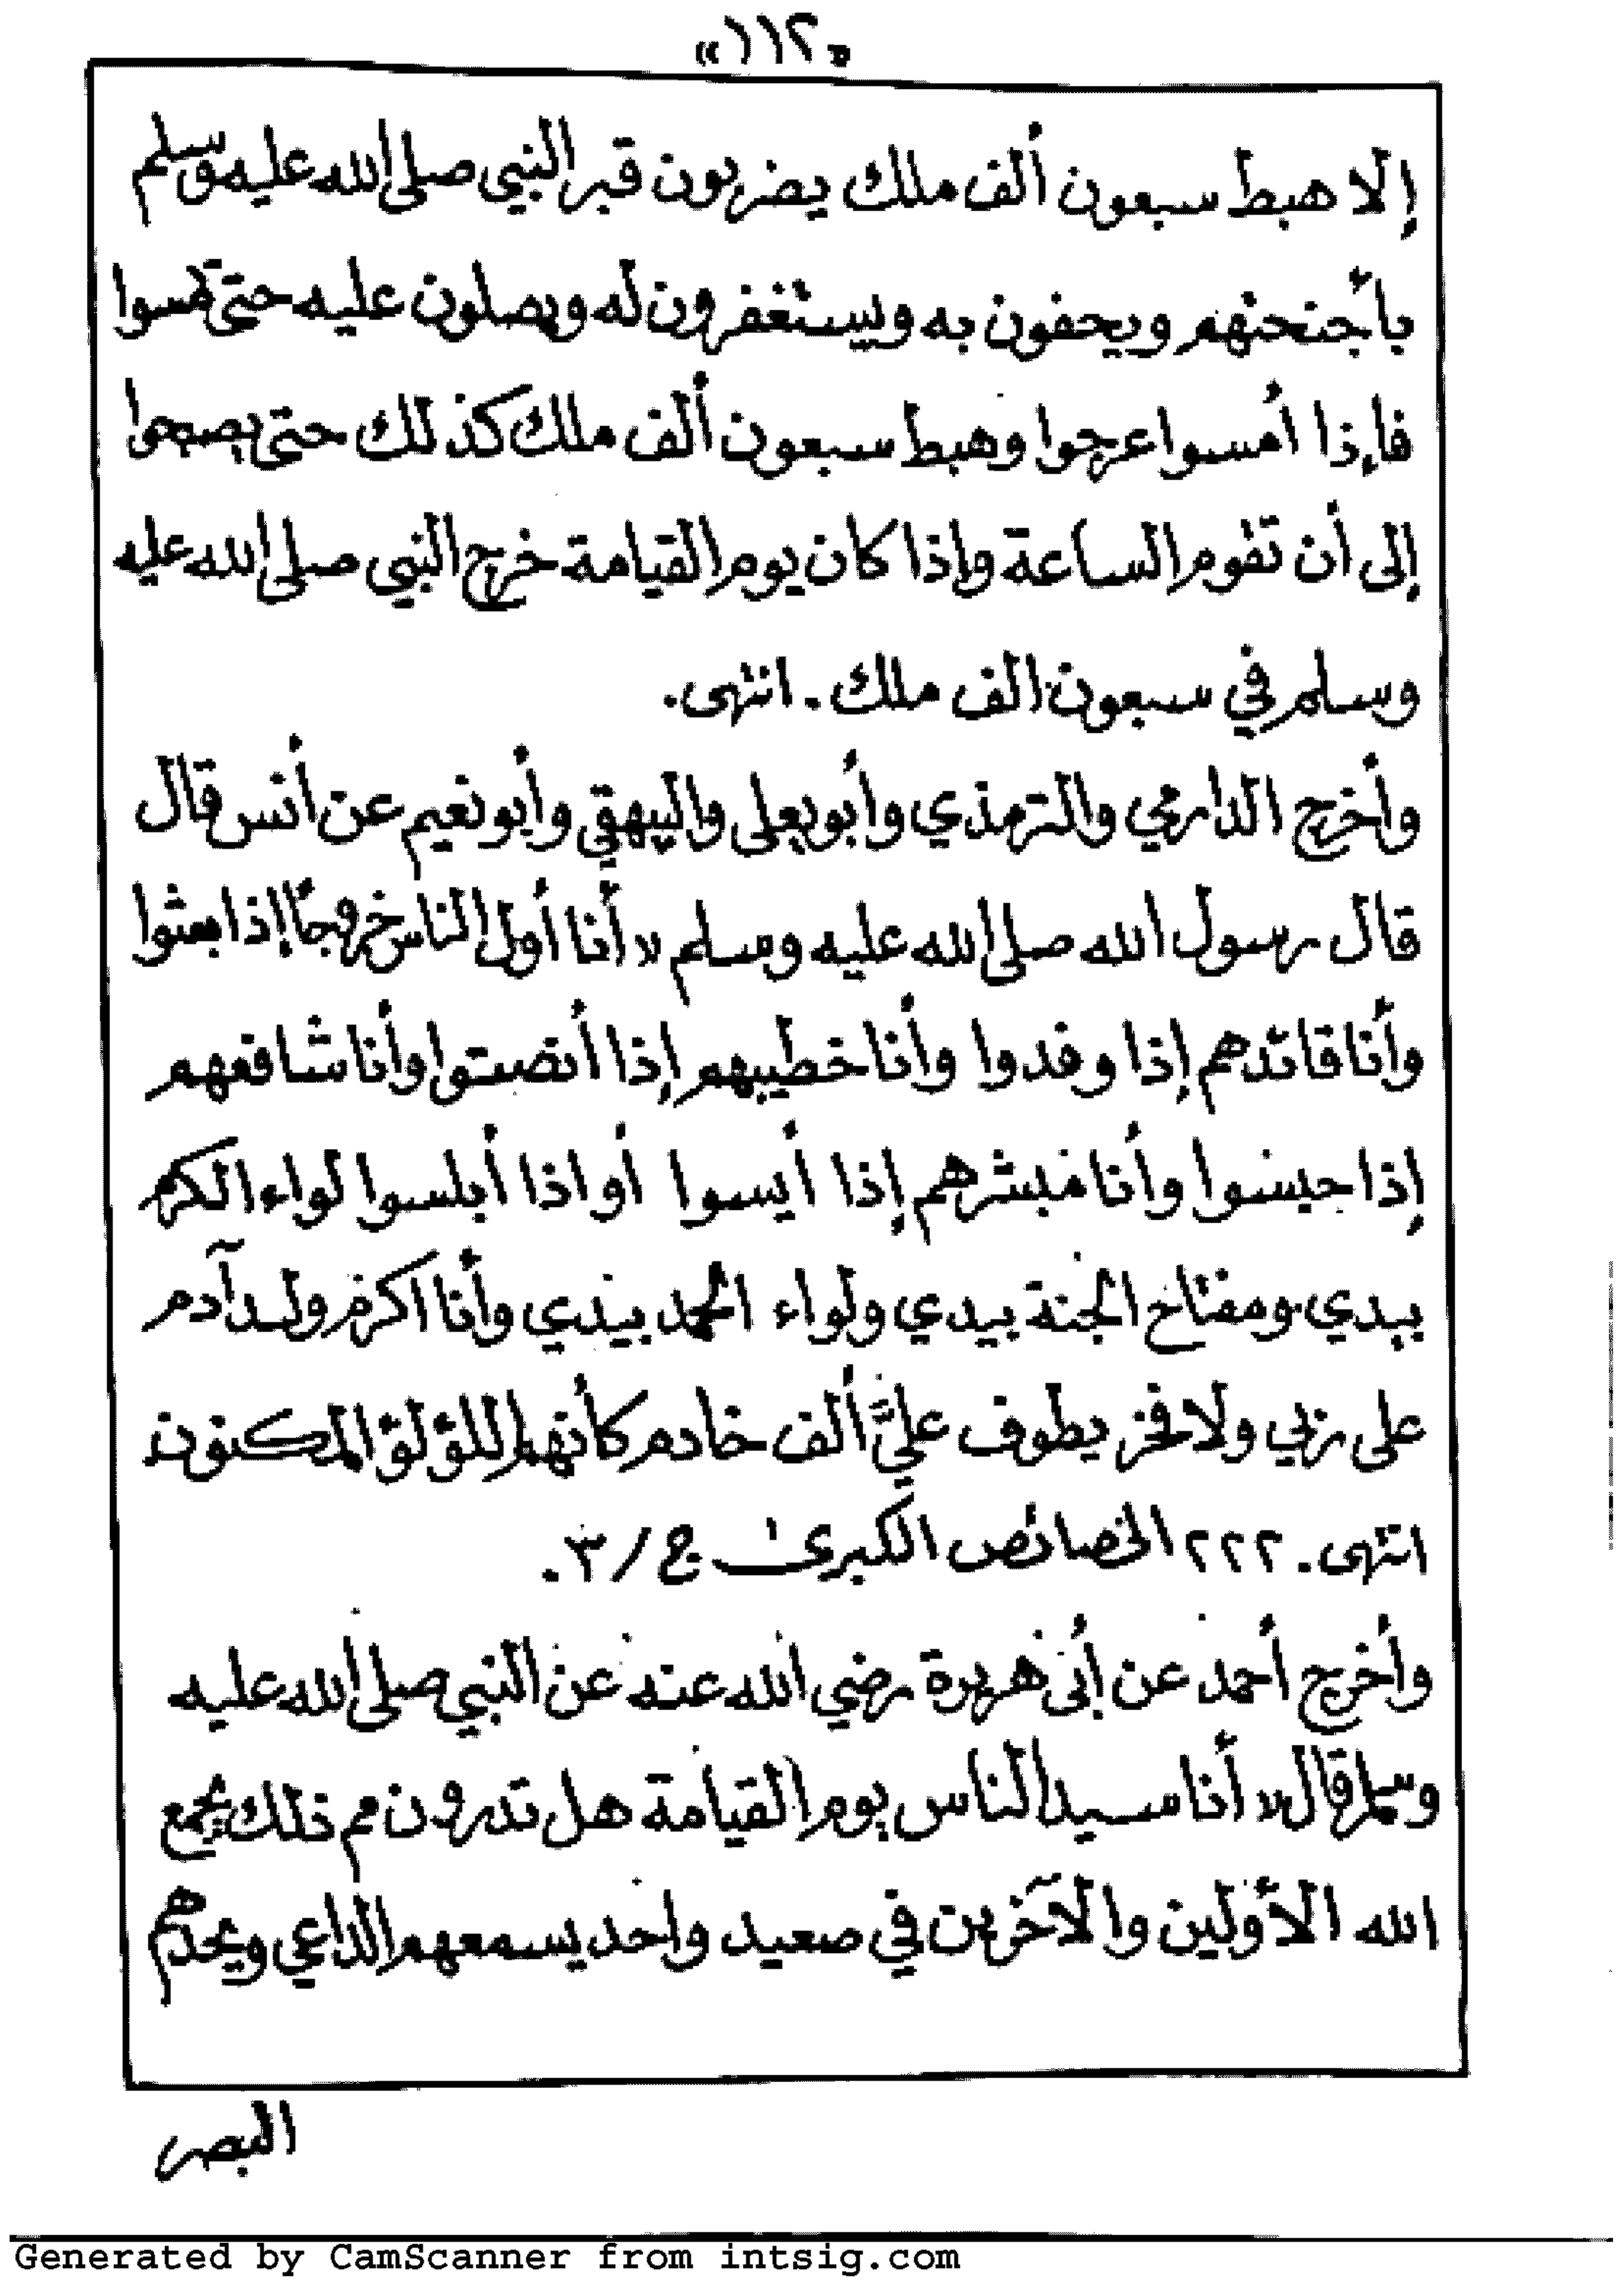 «١١٢»
إلا هبط سبعون ألف ملك يضربون قبر النبي صلى الله عليه وسلم
بأجنحتهم ويحفون به ويستغفرون له ويصلون عليه حتى يمسوا
فإذا أمسوا عرجوا وهبط سبعون ألف ملك كذلك حتى يصبحوا
إلى أن تقوم الساعة وإذا كان يوم القيامة خرج النبي صلى الله عليه
وسلم في سبعون الف ملك. انتهى.
وأخرج الدارمي والترمذي وأبو يعلى والبيهقي وأبو نعيم عن أنس قال
قال رسول الله صلى الله عليه وسلم «أنا أول الناس خروجًا إذا بعثوا
وأنا قائدهم إذا وفدوا وأنا خطيبهم إذا أنصتوا وأنا شافعهم
إذا حبسوا وأنا مبشرهم إذا أيسوا أو اذا أبلسوا لواء الكرم
بيدي ومفتاح الجنة بيدي ولواء الحمد بيدي وأنا اكرم ولد آدم
على ربي ولا فخر يطوف عليَّ ألف خادم كأنهم اللؤلؤ المكنون
انتهى. ٢٢٢ الخصائص الكبرى ج/٣.
وأخرج أحمد عن أبى هريرة رضي الله عنه عن النبي صلى الله عليه
وسلم قال «أنا سيد الناس يوم القيامة هل تدرون مم ذلك يجمع
الله الأولين والآخرين في صعيد واحد يسمعهم الداعي ويحدهم
البصر
Generated by CamScanner from intsig.com